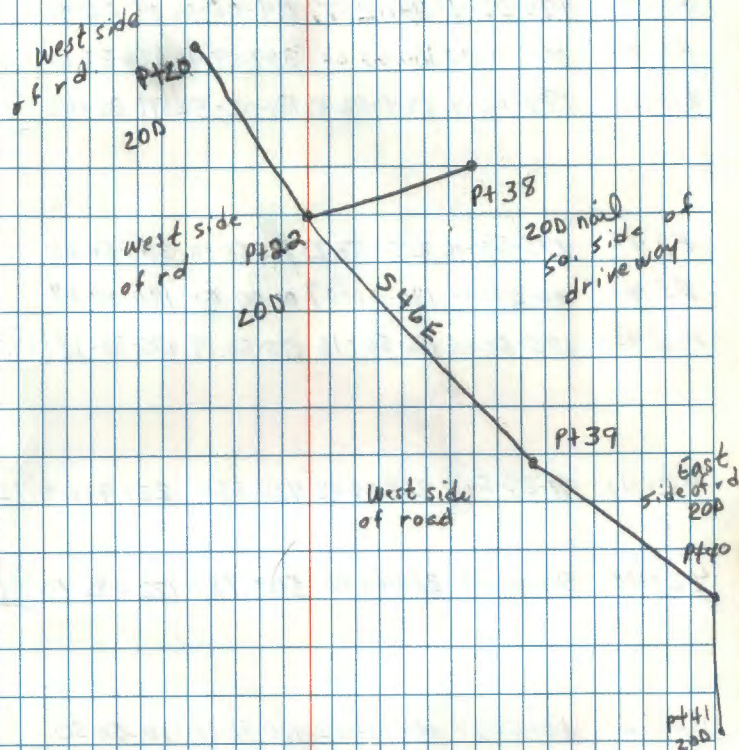 west side
of rd.
Pt20
20D
Pt 38
20D nail
so. side of
driveway
west side
of rd
Pt22
20D
S46E
Pt39
West side
of road
East
side of rd
20D
Pt40
pt41
20D